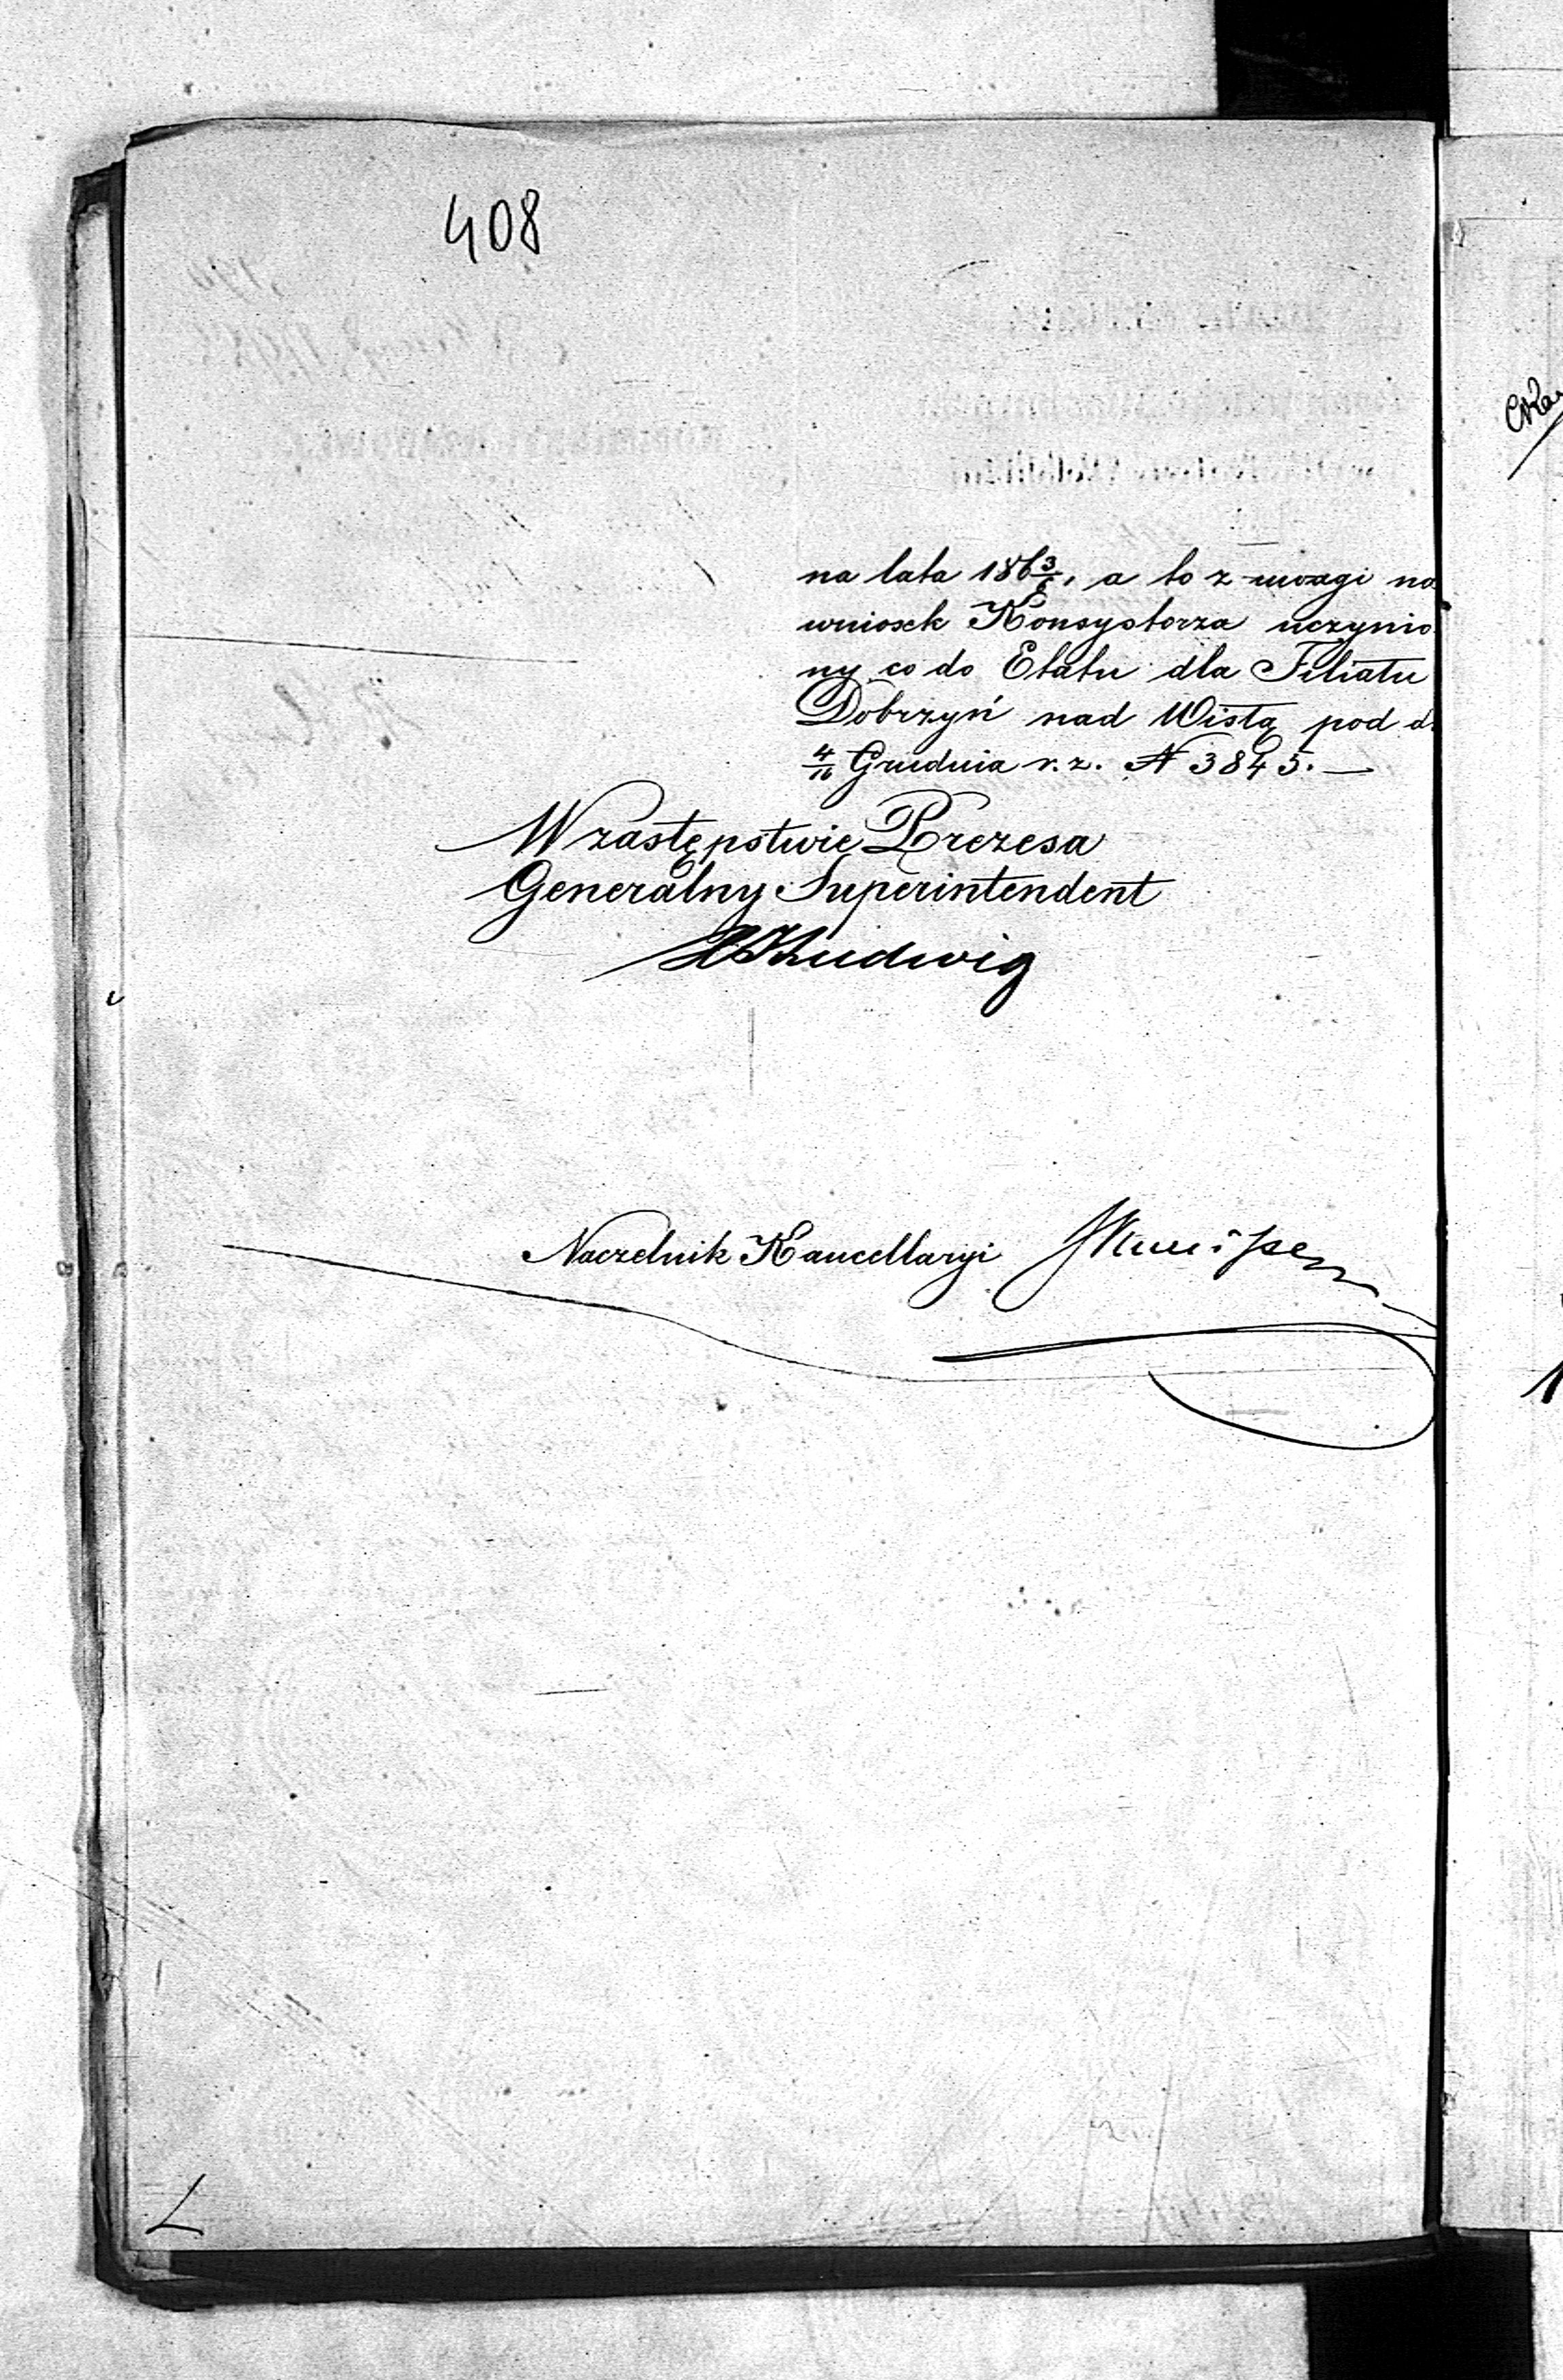 408
na lata 186 3/6, a to z uwagi na
wniosek Konsystorza uczynio
ny co do Etatu dla Filiału
Dobrzyń nad Wisłą pod d.
4/16 Grudnia r. z. N 3845. —
W zastępstwie Prezesa
Generalny Superintendent
Ludwig
Naczelnik Kancellaryi
L